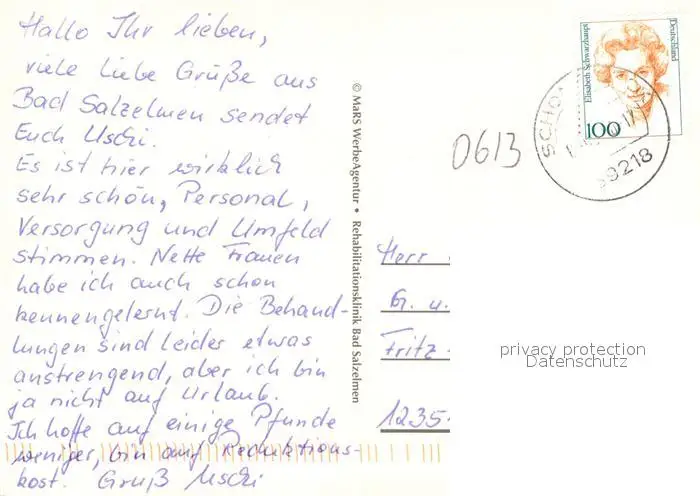 Hallo Ihr lieben,
viele liebe Grüße aus
Bad Salzelmen sendet
Euch Uschi.
Es ist hier wirklich
sehr schön, Personal,
Versorgung und Umfeld
stimmen. Nette Frauen
habe ich auch schon
kennengelernt. Die Behand-
lungen sind leider etwas
anstrengend, aber ich bin
ja nicht auf Urlaub.
Ich hoffe auf einige Pfunde
weniger, bin auf Reduktions-
kost. Gruß Uschi
© MaRS WerbeAgentur • Rehabilitationsklinik Bad Salzelmen
Elisabeth Schwarzhaupt
Deutschland
100
39218
0613
Herr
G. u.
Fritz-
1235
privacy protection
Datenschutz